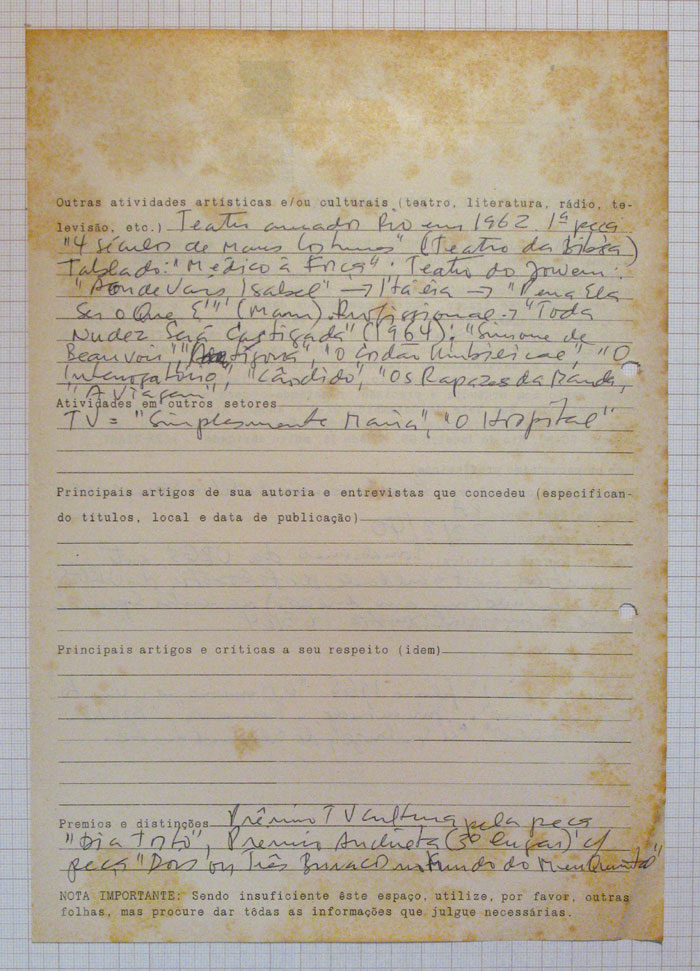 Outras atividades artísticas e/ou culturais (teatro, literatura, rádio, te-
levisão, etc.) Teatro amador Rio em 1962. 1ª peça
"4 Séculos de Maus Costumes" (Teatro da Bolsa)
Tablado: "Médico à Força". Teatro do Jovem:
"Aonde Vais Isabel" → Itália → "Pena Ela
Ser o Que É" (Mann). Profissional → "Toda
Nudez Será Castigada" (1964): "Simone de
Beauvoir" "Antígona", "O Cordão Umbilical", "O
Interrogatório", "Cândido", "Os Rapazes da Banda,
"A Viagem"
Atividades em outros setores
TV = "Simplesmente Maria", "O Hospital"
Principais artigos de sua autoria e entrevistas que concedeu (especifican-
do títulos, local e data de publicação)
Principais artigos e críticas a seu respeito (idem)
Premios e distinções Prêmio TV Cultura pela peça
"Dia Torto", Premio Anchieta (3º lugar) c/
peça "Dois ou Três Buraco no Fundo do Meu Quintal"
NOTA IMPORTANTE: Sendo insuficiente êste espaço, utilize, por favor, outras
folhas, mas procure dar tôdas as informações que julgue necessárias.